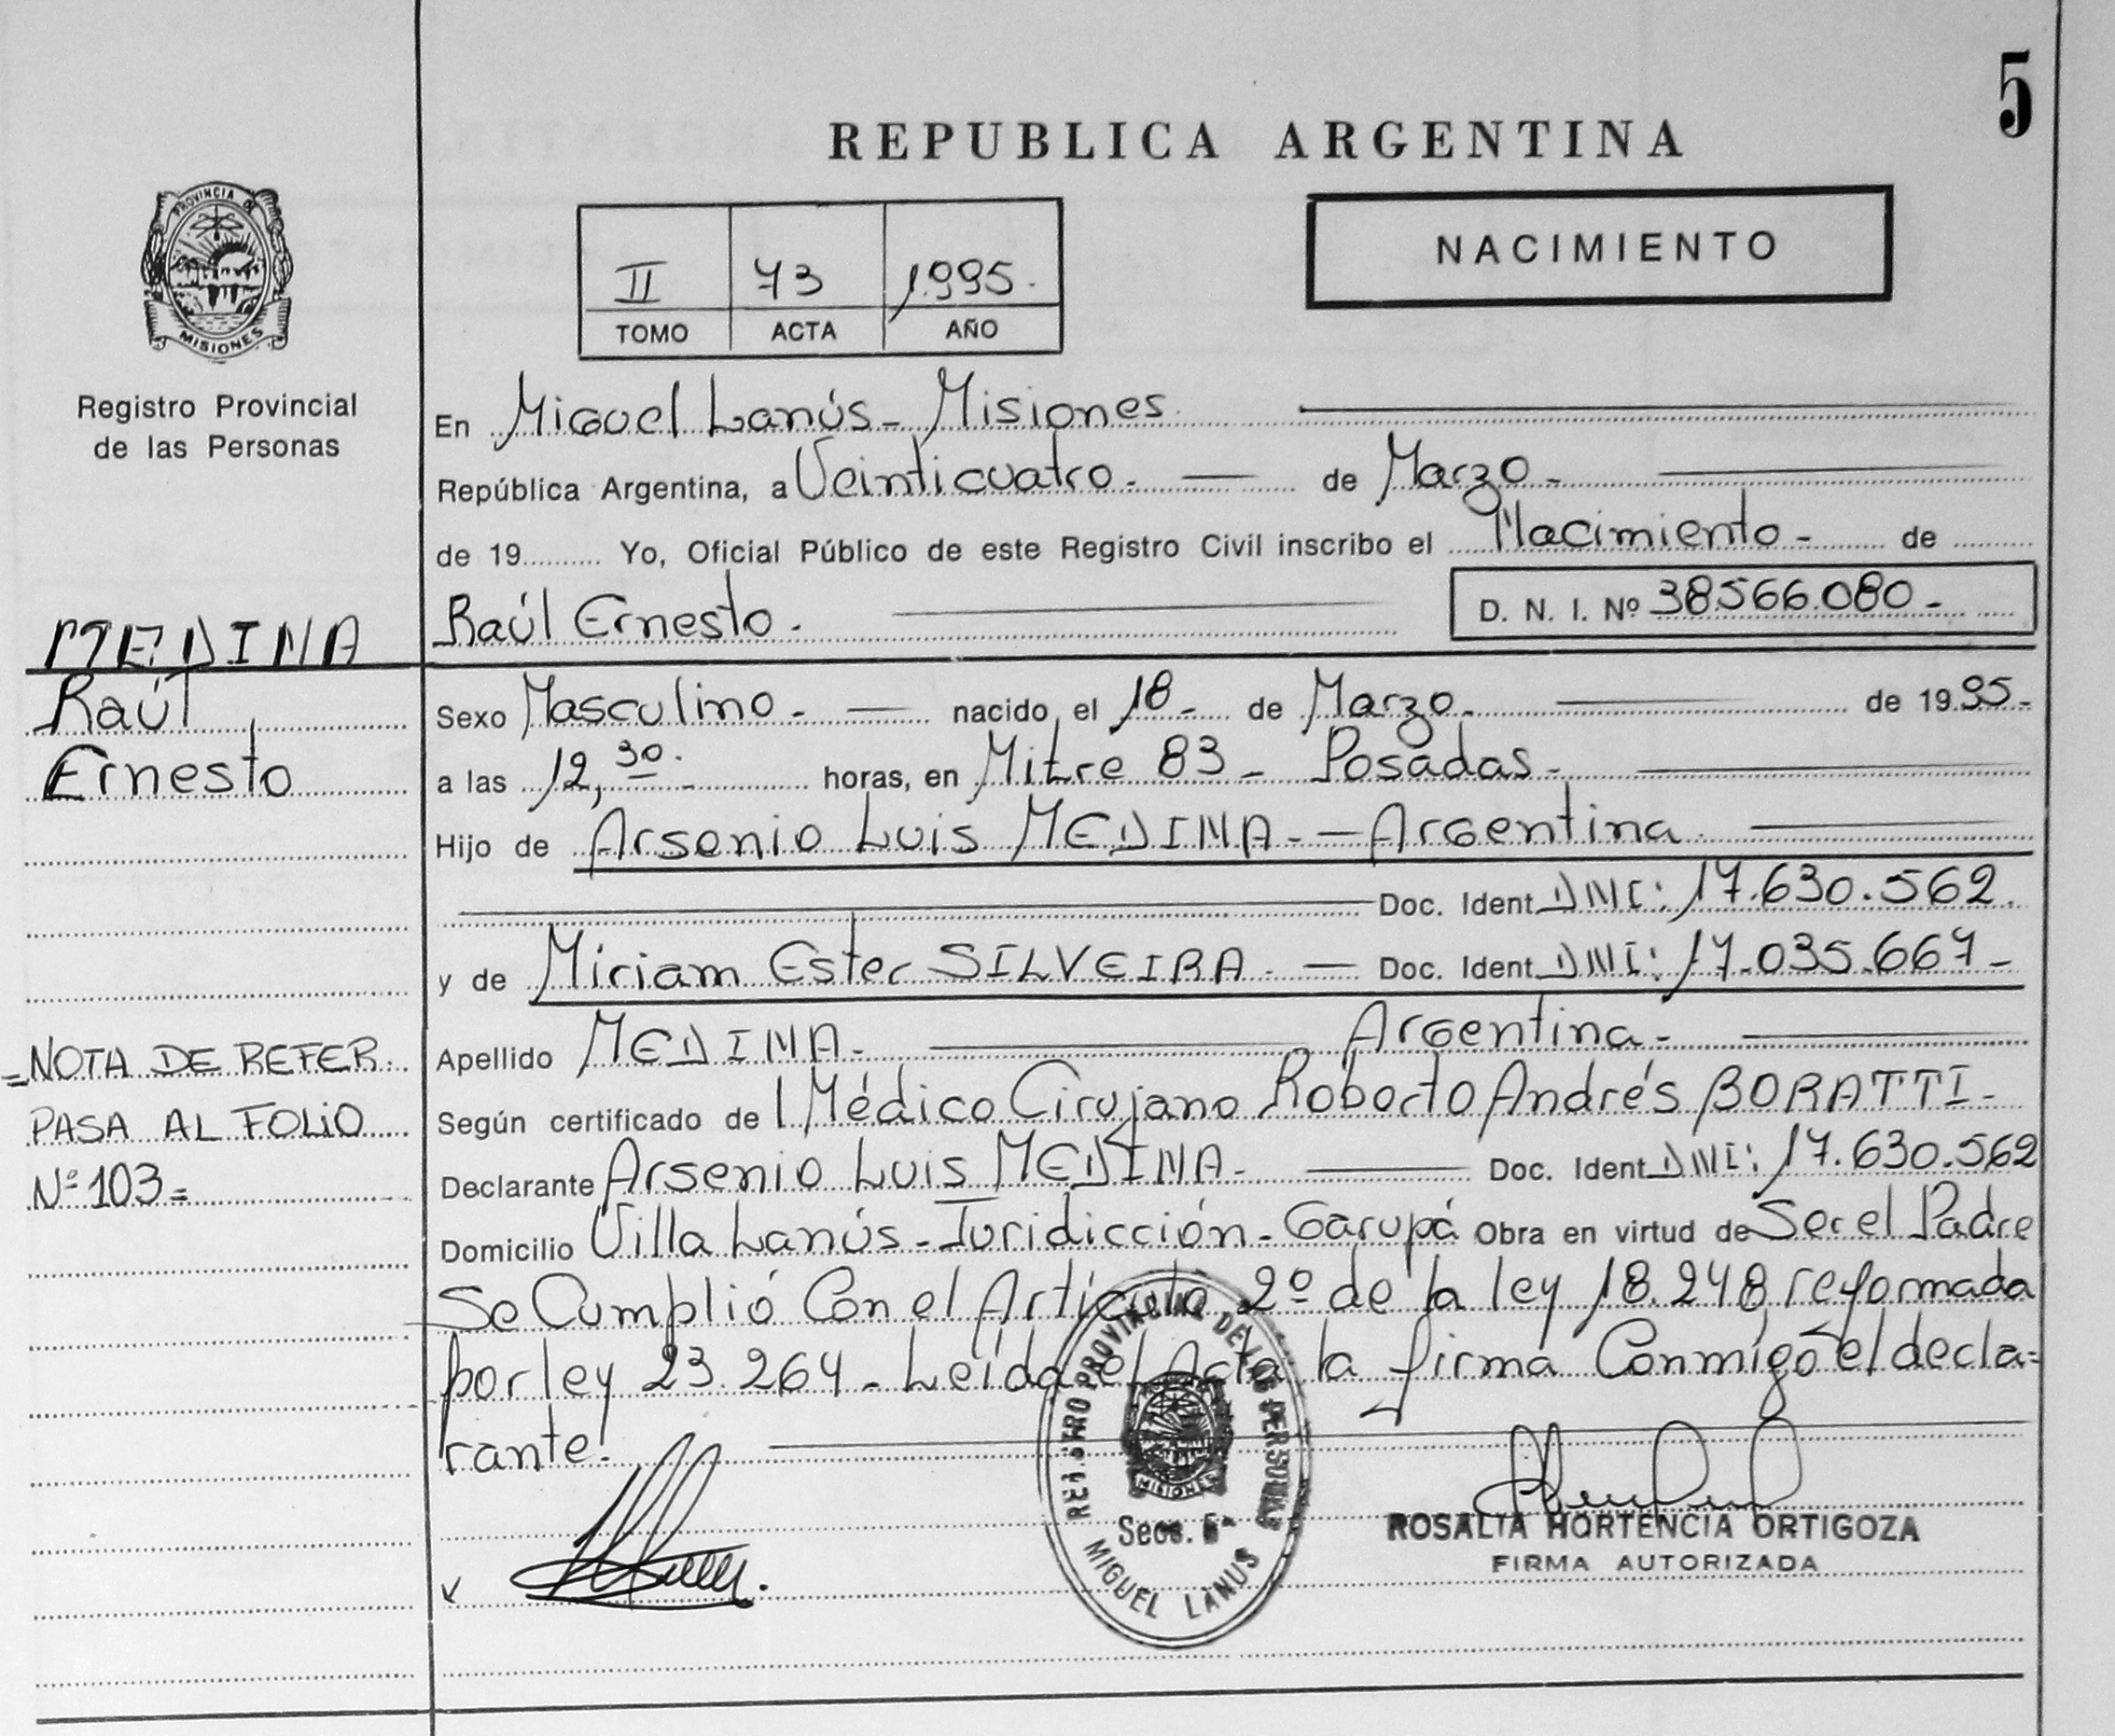 5
REPUBLICA ARGENTINA
PROVINCIA DE
MISIONES
II 73 1.995.
TOMO ACTA AÑO
NACIMIENTO
Registro Provincial
de las Personas
En Miguel Lanús - Misiones
República Argentina, a Veinticuatro. — de Marzo -
de 19......... Yo, Oficial Público de este Registro Civil inscribo el Nacimiento - de
Raúl Ernesto. D. N. I. Nº 38.566.080 -
MEDINA
Raúl
Ernesto
Sexo Masculino - — nacido el 18 - de Marzo - de 1995-
a las 12,30. horas, en Mitre 83 - Posadas -
Hijo de Arsenio Luis MEDINA - — Argentina
Doc. Ident. DNI: 17.630.562.
y de Miriam Ester SILVEIRA - — Doc. Ident. DNI: 17.035.667 -
Apellido MEDINA - Argentina -
Según certificado del Médico Cirujano Roberto Andrés BORATTI -
Declarante Arsenio Luis MEDINA - Doc. Ident. DNI: 17.630.562
Domicilio Villa Lanús - Juridicción - Garupá Obra en virtud de Ser el Padre
Se Cumplió Con el Artículo 2º de la ley 18.248, reformada
por ley 23.264 - Leída el Acta la firma Conmigo el decla=
rante.
= NOTA DE REFER.
PASA AL FOLIO
Nº 103 =
REGISTRO PROVINCIAL DE LAS PERSONAS
MISIONES
Secc. 5ª
MIGUEL LANUS
ROSALIA HORTENCIA ORTIGOZA
FIRMA AUTORIZADA